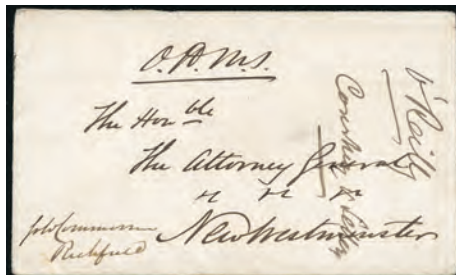 O.H.M.S.
The Hon ble
The Attorney General
" " "
New Westminster
Gold Commr
Richfield
O'Reilly